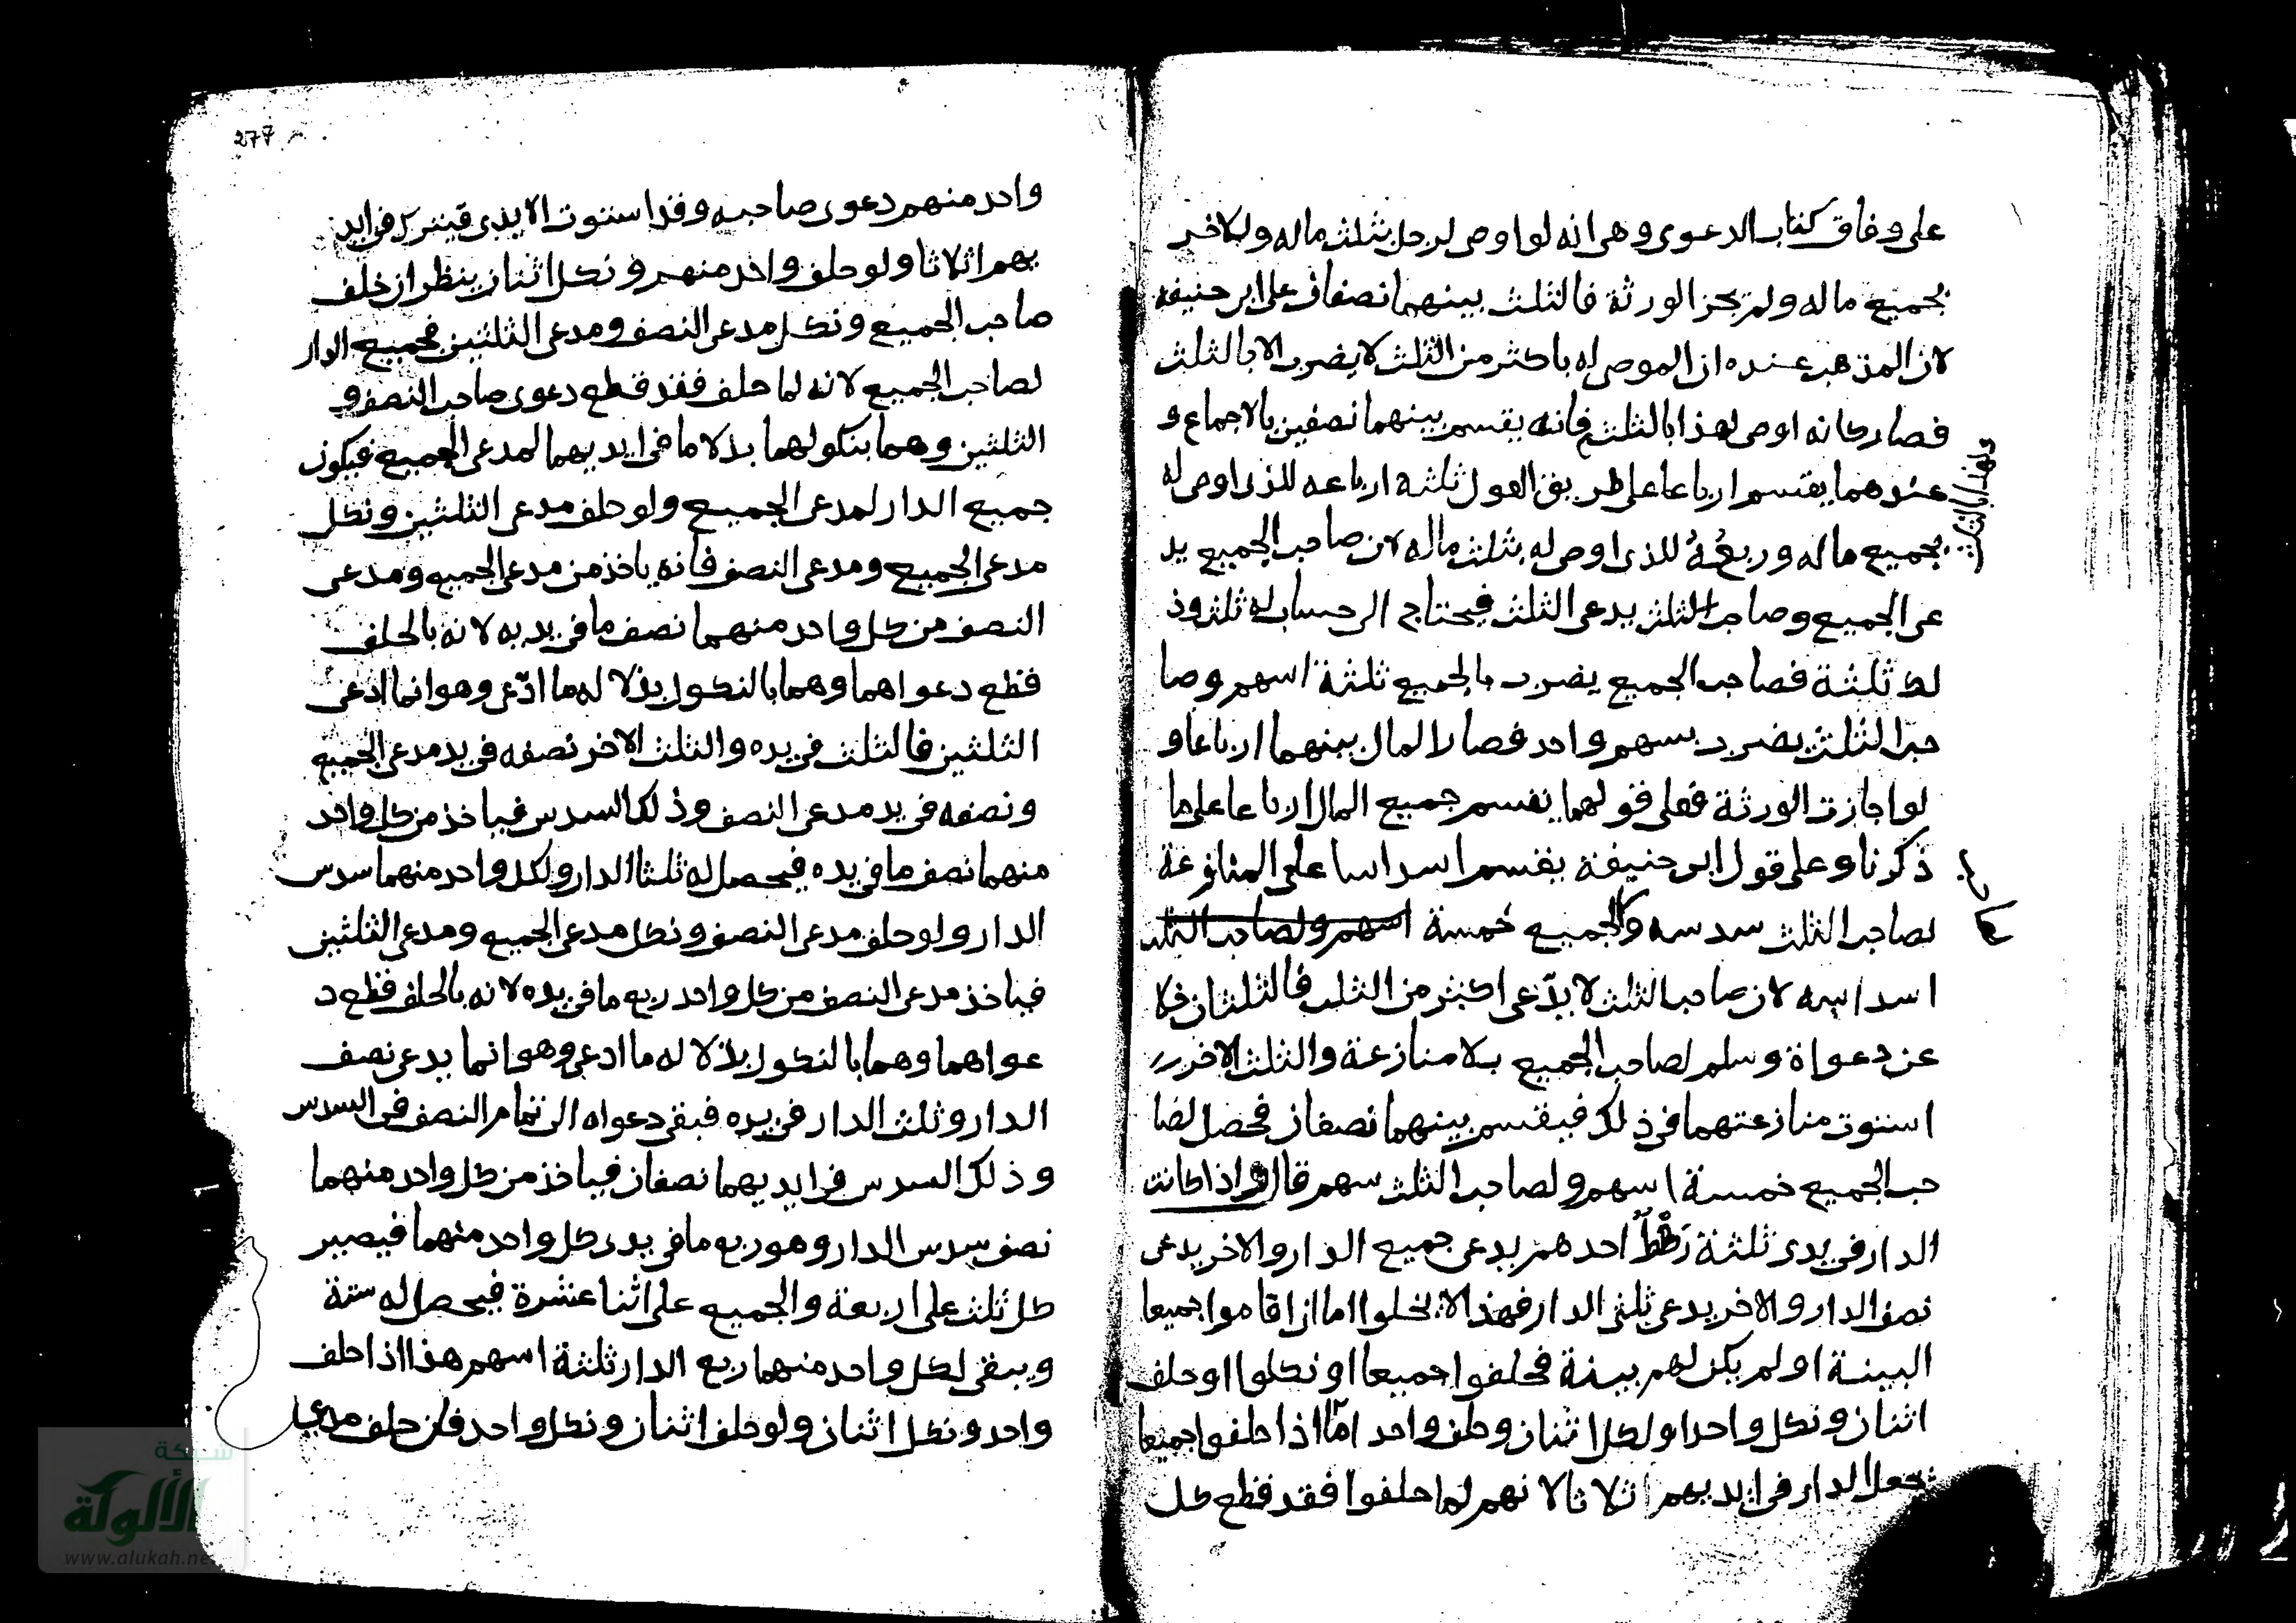 على وفاق كتاب الدعوى وهى انه لو اوصى لرجل بثلث ماله ولاخر
بجميع ماله ولم يجز الورثة فالثلث بينهما نصفان على ابى حنيفة
لان المذهب عنده ان الموصى له باكثر من الثلث لا يضرب الا بالثلث
فصار كانه اوصى لهذا بالثلث فانه يقسم بينهما نصفين بالاجماع و
ولهذا بالثلث
عندهما يقتسم ارباعا على طريق العول ثلثة ارباعه للذى اوصى له
بجميع ماله وربعُهُ للذى اوصى له بثلث ماله لان صاحب الجميع يد
عى الجميع وصاحب الثلث يدعى الثلث فيحتاج الى حساب له ثلث وذ
لك ثلثة فصاحب الجميع يضرب بالجميع ثلثة اسهم وصا
حب الثلث يضرب بسهم واحد فصار المال بينهما ارباعا و
لو اجازت الورثة فعلى قولهما يقسم جميع المال ارباعا على ما
ذكرنا وعلى قول ابى حنيفة يقسم اسداسا على المنازعة
لصاحب الثلث سدسه والجميع خمسة اسهم ولصاحب الثلث
اسداسه لان صاحب الثلث لا يدّعى اكثر من الثلث فالثلثان خلا
عن دعواة وسلم لصاحب الجميع بلا منازعة والثلث الاخر
استوت منازعتهما فى ذلك فيقسم بينهما نصفان فحصل لصا
حب الجميع خمسة اسهم ولصاحب الثلث سهم قال واذا كانت
الدار فى يدى ثلثة رهط احدهم يدعى جميع الدار والاخر يدعى
نصف الدار والاخر يدعى ثلثى الدار فهذا لا يخلوا اما ان اقاموا جميعا
البينة او لم يكن لهم بينة فحلفوا جميعا او نكلوا او حلف
اثنان ونكل واحد او نكل اثنان وحلف واحد امّا اذا حلفوا جميعا
تجعل الدار فى ايديهم اثلاثا لانهم لما حلفوا فقد قطع كل
277
واحد منهم دعوى صاحبه وقد استوت الايدى فيترك فى ايد
يهم اثلاثا ولو حلف واحد منهم ونكل اثنان ينظر ان حلف
صاحب الجميع ونكل مدعى النصف ومدعى الثلثين فجميع الدار
لصاحب الجميع لانه لما حلف فقد قطع دعوى صاحب النصف و
الثلثين وهما بنكولهما بذلا ما فى ايديهما لمدعى الجميع فيكون
جميع الدار لمدعى الجميع ولو حلف مدعى الثلثين ونكل
مدعى الجميع ومدعى النصف فانه ياخذ من مدعى الجميع ومدعى
النصف من كل واحد منهما نصف ما فى يديه لانه بالحلف
قطع دعواهما وهما بالنكول بذلا له ما ادّعى وهو انما ادعى
الثلثين فالثلث فى يده والثلث الاخر نصفه فى يد مدعى الجميع
ونصفه فى يد مدعى النصف وذلك السدس فياخذ من كل واحد
منهما نصف ما فى يده فيحصل له ثلثا الدار ولكل واحد منهما سدس
الدار ولو حلف مدعى النصف ونكل مدعى الجميع ومدعى الثلثين
فياخذ مدعى النصف من كل واحد ربع ما فى يده لانه بالحلف قطع د
عواهما وهما بالنكول بذلا له ما ادعى وهو انما يدعى نصف
الدار وثلث الدار فى يده فبقى دعواه الى تمام النصف فى السدس
وذلك السدس فى ايديهما نصفان فياخذ من كل واحد منهما
نصف سدس الدار وهو ربع ما فى يدى كل واحد منهما فيصير
كل ثلث على اربعة والجميع على اثنا عشرة فيحصل له ستة
ويبقى لكل واحد منهما ربع الدار ثلثة اسهم هذا اذا حلف
واحد ونكل اثنان ولو حلف اثنان ونكل واحد فان حلف مدعى
شبكة
الألوكة
www.alukah.ne